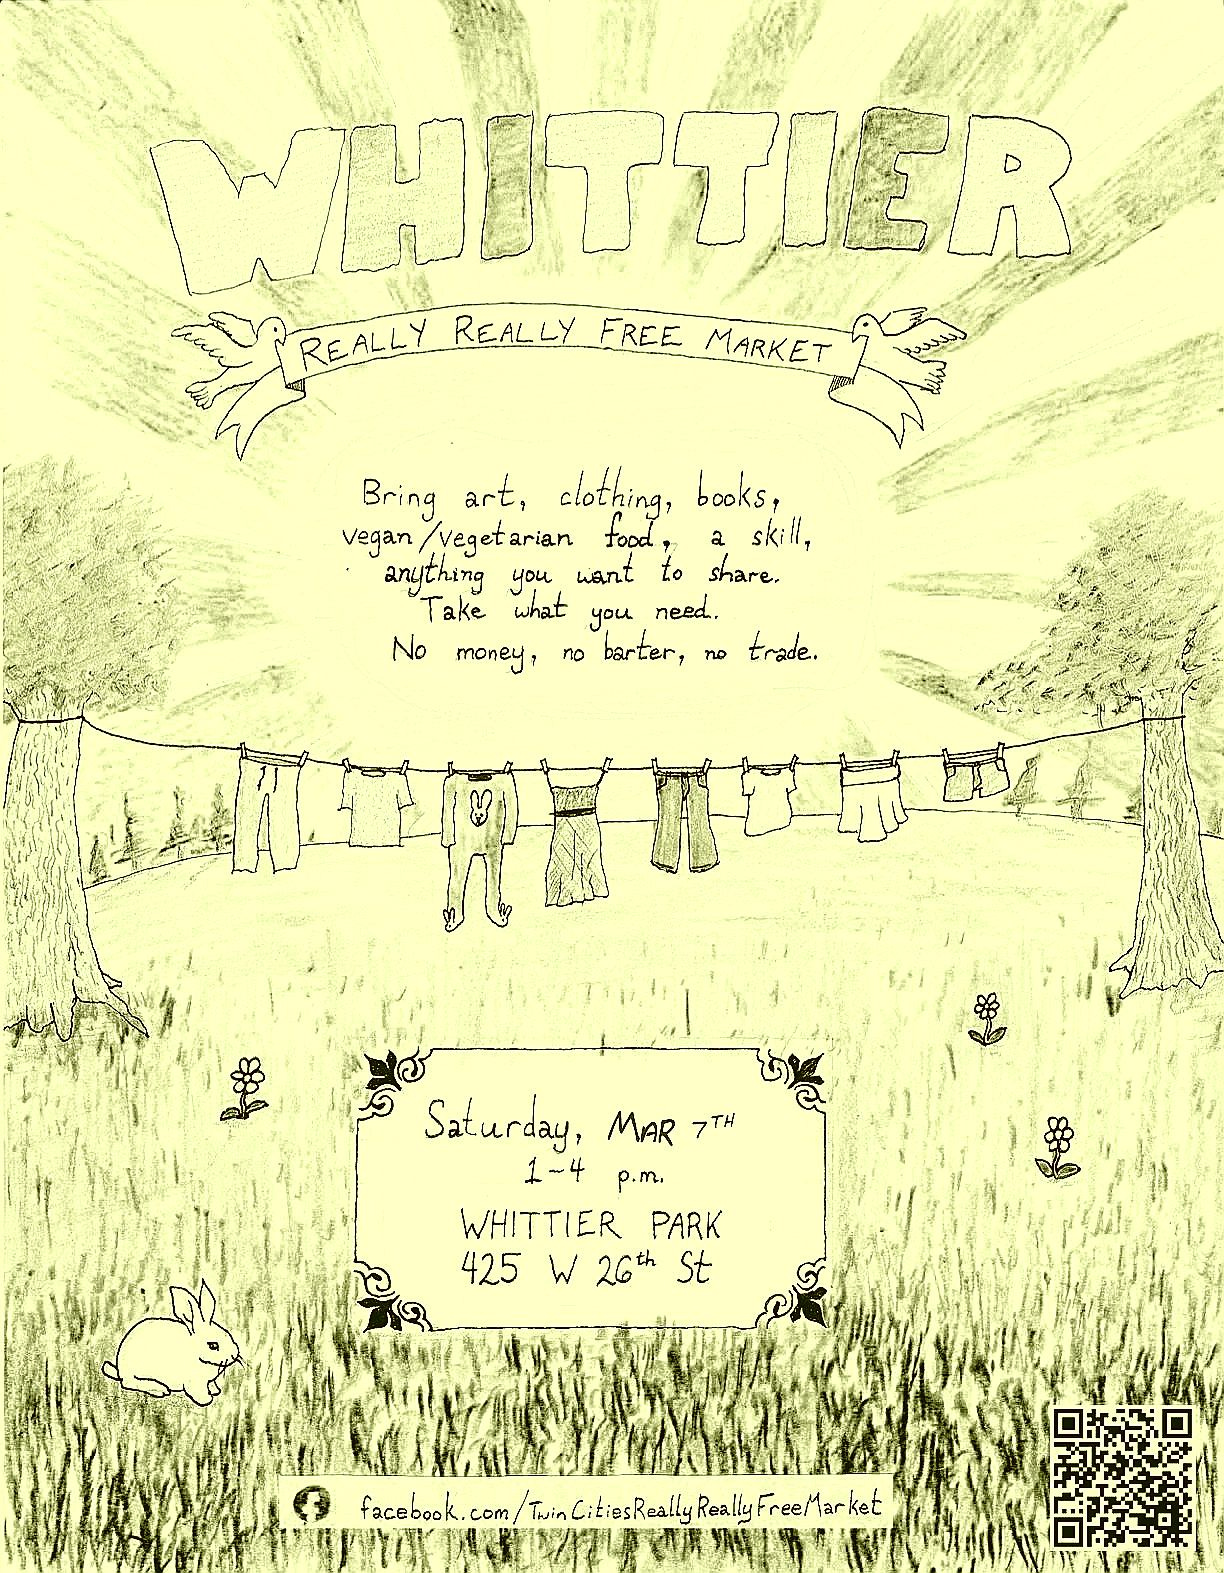 WHITTIER
REALLY REALLY FREE MARKET
Bring art, clothing, books,
vegan/vegetarian food, a skill,
anything you want to share.
Take what you need.
No money, no barter, no trade.
Saturday, MAR 7TH
1-4 p.m.
WHITTIER PARK
425 W 26th St
facebook.com/TwinCitiesReallyReallyFreeMarket